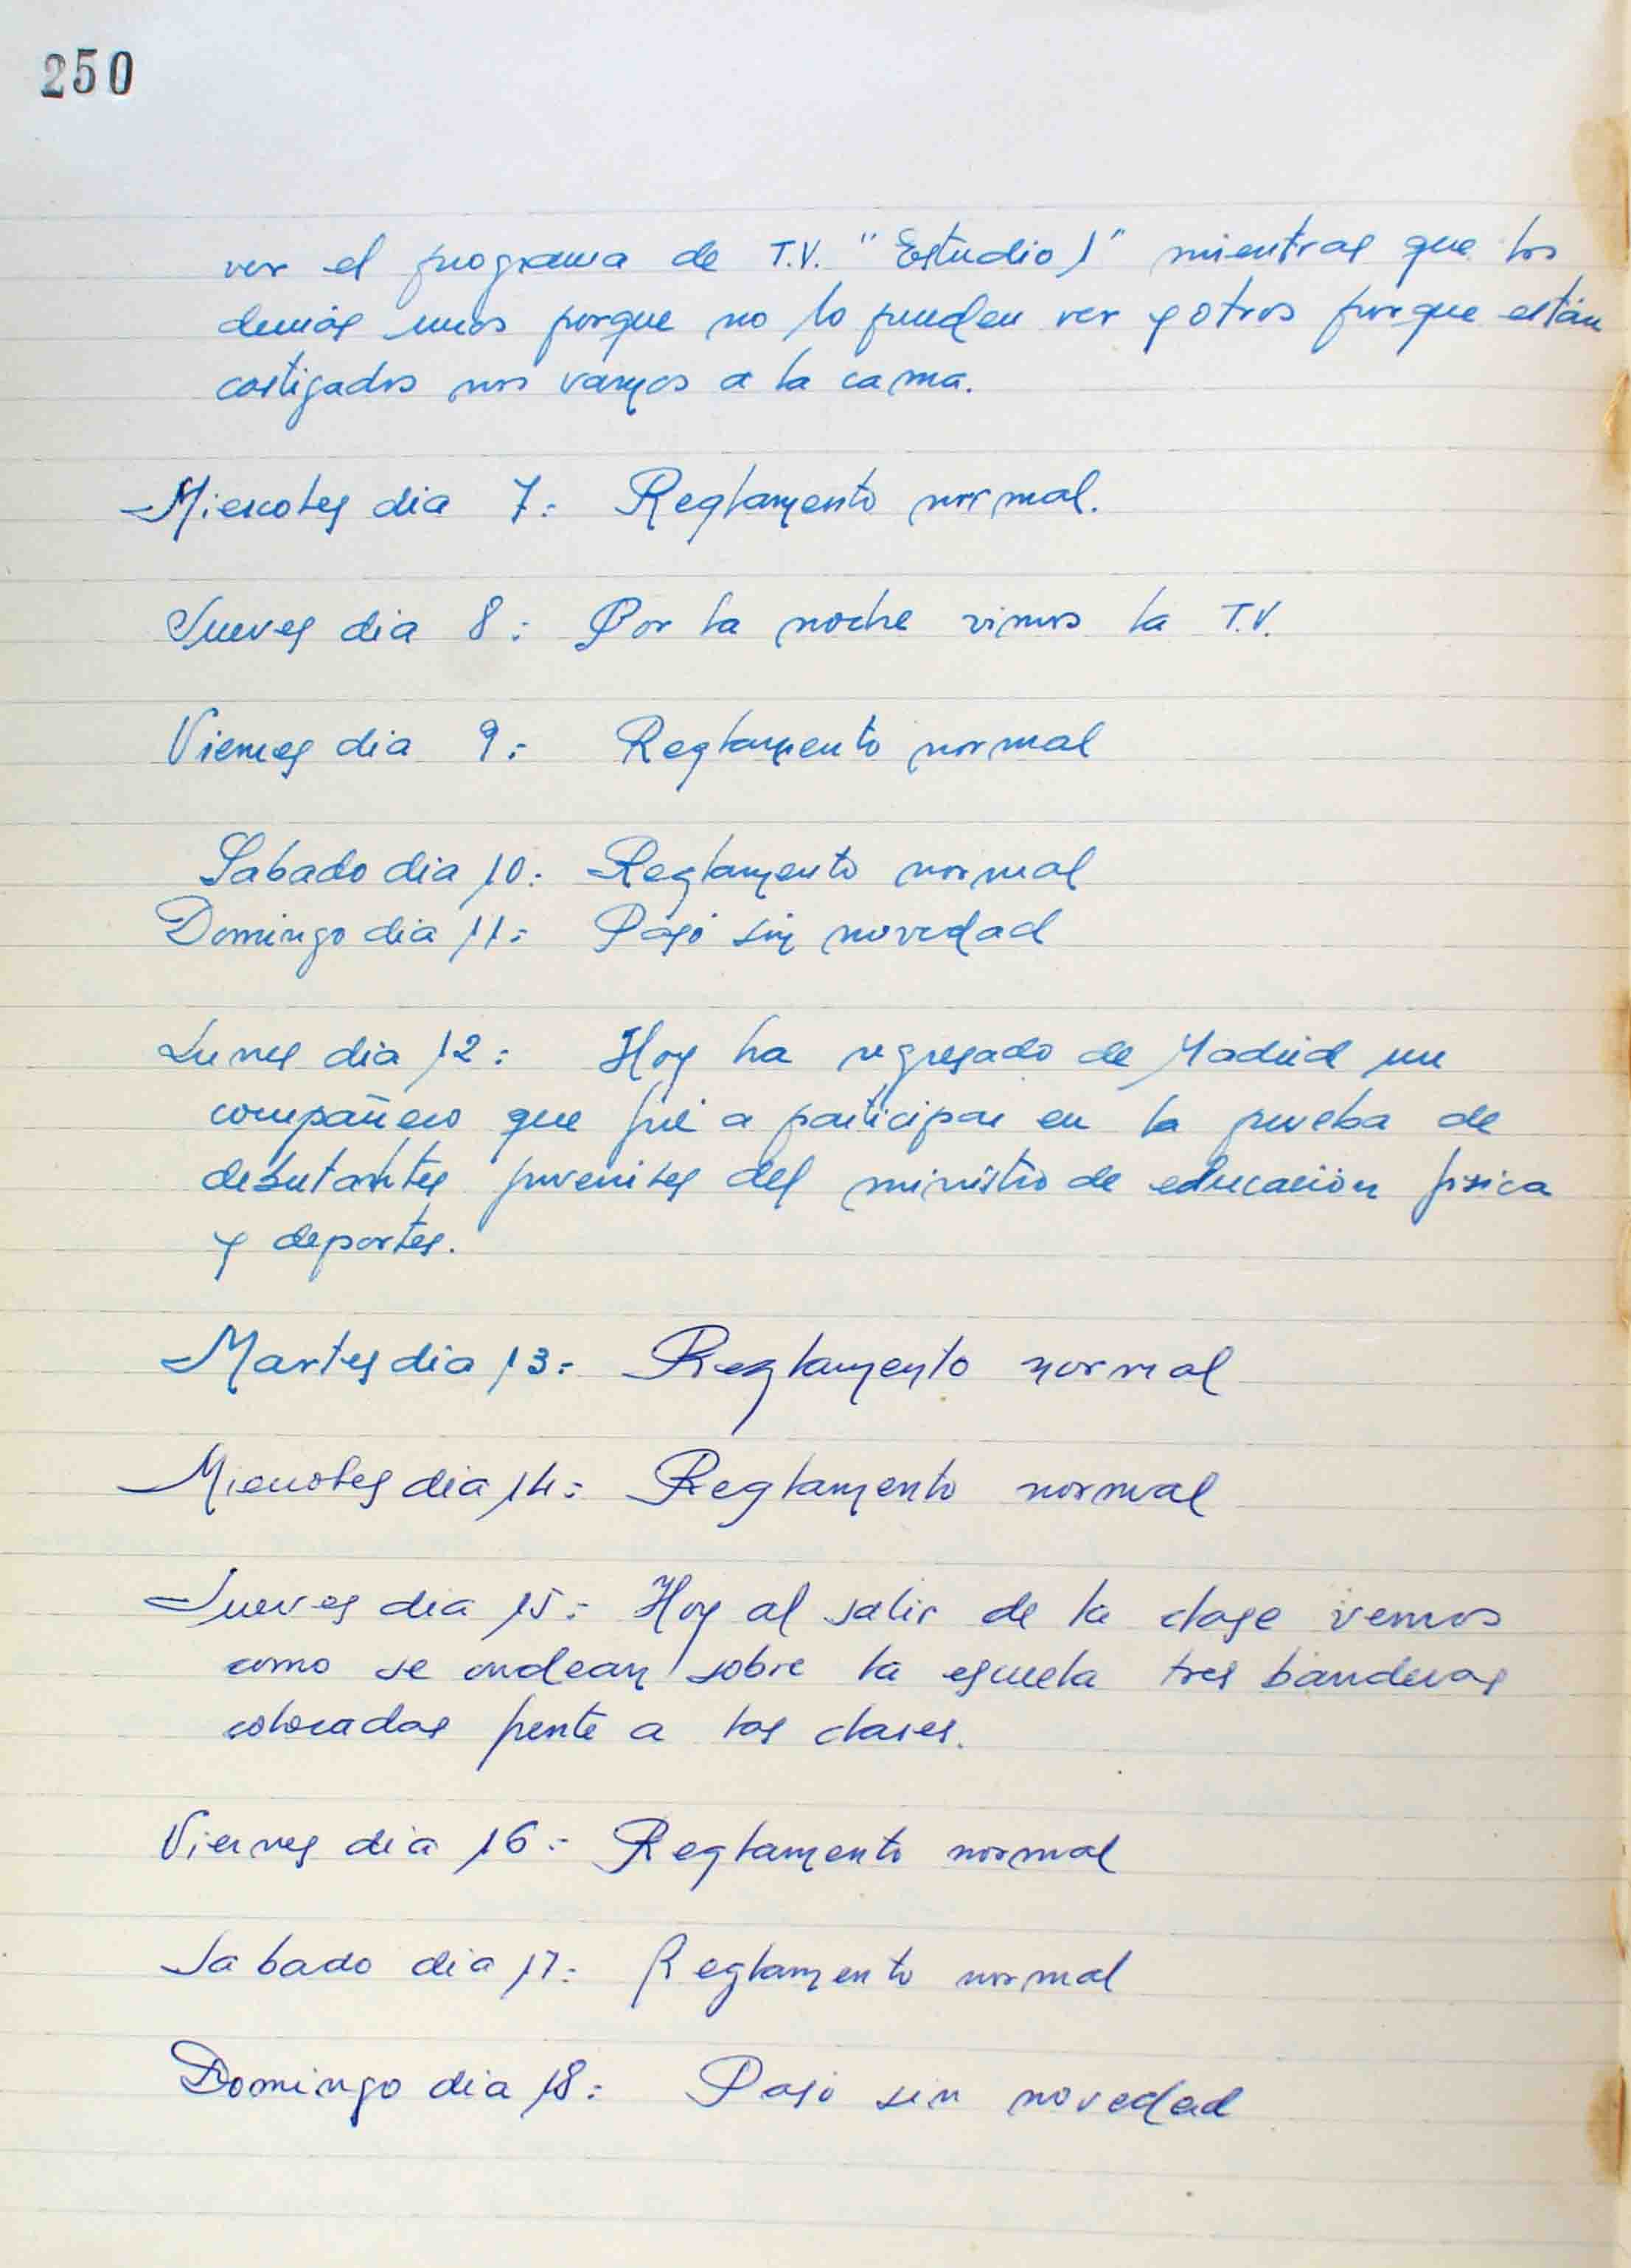 250
ver el programa de T.V. "Estudio 1" mientras que los
demás unos porque no lo pueden ver y otros porque están
castigados nos vamos a la cama.
Miercoles dia 7: Reglamento normal.
Jueves dia 8: Por la noche vimos la T.V.
Viernes dia 9: Reglamento normal
Sabado dia 10: Reglamento normal
Domingo dia 11: Pasó sin novedad
Lunes dia 12: Hoy ha regresado de Madrid un
compañero que fué a participar en la prueba de
debutantes juveniles del ministro de educación fisica
y deportes.
Martes dia 13: Reglamento normal
Miercoles dia 14: Reglamento normal
Jueves dia 15: Hoy al salir de la clase vemos
como se ondean sobre la escuela tres banderas
colocadas frente a las clases.
Viernes dia 16: Reglamento normal
Sabado dia 17: Reglamento normal
Domingo dia 18: Pasó sin novedad